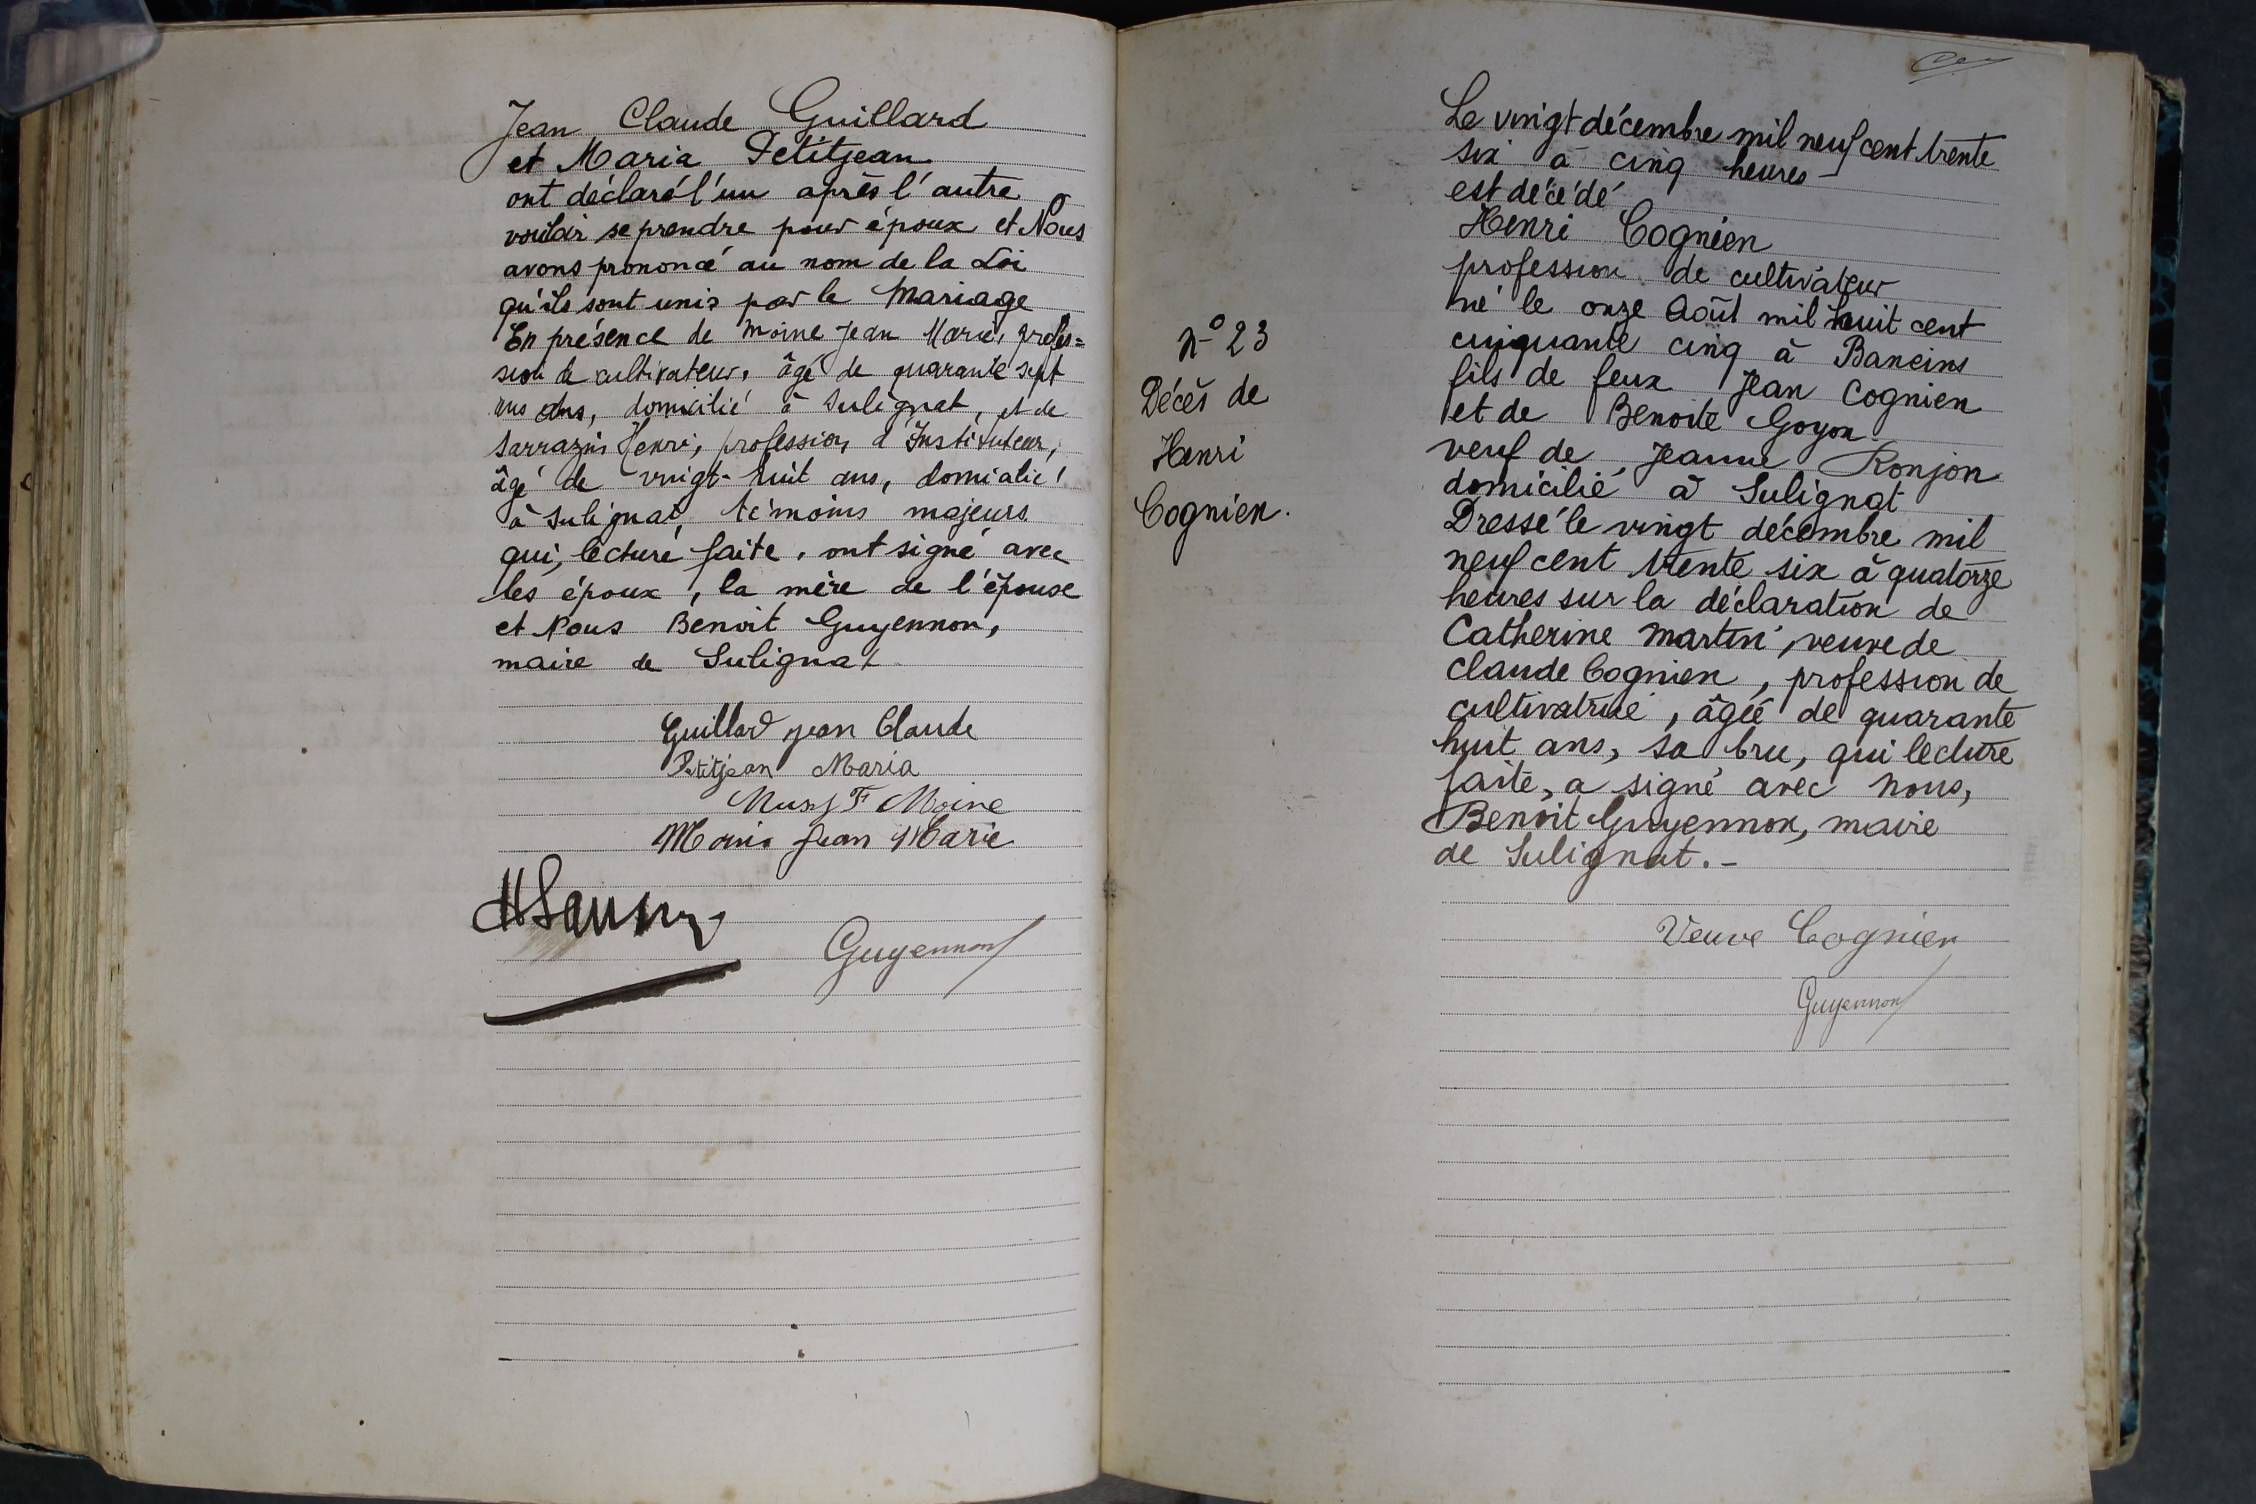 Jean Claude Guillard
et Maria Petitjean
ont déclaré l'un après l'autre
vouloir se prendre pour époux et Nous
avons prononcé au nom de la Loi
qu'ils sont unis par le Mariage
En présence de Moine Jean Marie, profes=
sion de cultivateur, âgé de quarante sept
ans ans, domicilié à Sulignat, et de
Sarrazin Henri, profession d'Instituteur,
âgé de vingt-huit ans, domicilié
à Sulignat, témoins majeurs
qui, lecture faite, ont signé avec
les époux, la mère de l'épouse
et Nous Benoit Guyennon,
maire de Sulignat
Guillard jean Claude
Petitjean Maria
F Moine
Jean Marie
Guyennon
N° 23
Décès de
Henri
Cognien.
Le vingt décembre mil neuf cent trente
six à cinq heures
est décédé
Henri Cognien
profession de cultivateur
né le onze Août mil huit cent
cinquante cinq à Baneins
fils de feux Jean Cognien
et de Benoite Goyon
veuf de Jeanne Ronjon
domicilié à Sulignat
Dressé le vingt décembre mil
neuf cent trente six à quatorze
heures sur la déclaration de
Catherine Martin, veuve de
Claude Cognien, profession de
cultivatrice, âgée de quarante
huit ans, sa bru, qui lecture
faite, a signé avec nous,
Benoit Guyennon, maire
de Sulignat.-
Veuve Cognien
Guyennon